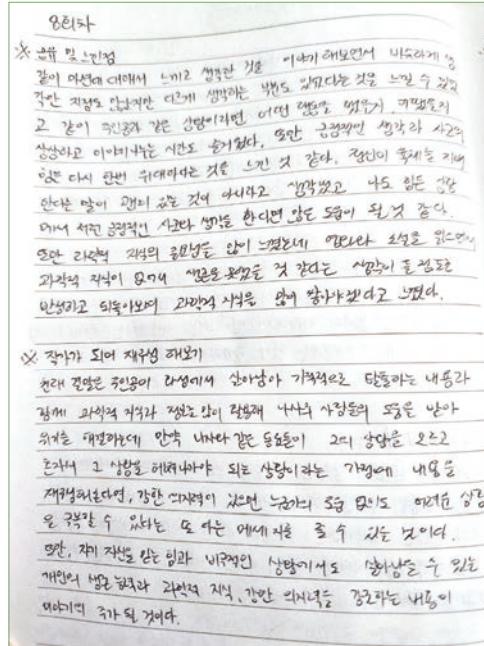 8회차
※ 공유 및 느낀점
같이 마션에 대해서 느끼고 생각한 것을 이야기 해보면서 비슷하게 생
각한 지점도 있었지만 다르게 생각하는 부분도 있었다는 것을 느낄 수 있었
고 같이 주인공과 같은 상황이라면 어떤 행동을 했을지, 어땠을지
상상하고 이야기 나누는 시간도 즐거웠다. 또한 긍정적인 생각과 사고의
힘은 다시 한번 위대하다는 것을 느낀 것 같다. 정신이 육체를 지배
한다는 말이 괜히 있는 것이 아니라고 생각했고 나도 힘든 상황
에서 긍정적인 사고와 생각을 한다면 많은 도움이 될 것 같다.
또한 과학적 지식의 중요성을 많이 느꼈는데 영화와 소설을 읽으면서
과학적 지식이 없어 생존을 못했을 것 같다는 생각이 들 정도로
반성하고 되돌아보며 과학적 지식을 많이 쌓아야겠다고 느꼈다.
※ 작가가 되어 재구성 해보기
원래 결말은 주인공이 화성에서 살아남아 기적적으로 탈출하는 내용과
함께 과학적 지식과 정보를 많이 활용해 나사의 사람들의 도움을 받아
위기를 해결하는데 만약 나사와 같은 동료들이 그의 상황을 모르고
혼자서 그 상황을 헤쳐나가야 되는 상황이라는 가정에 내용을
재구성해본다면, 강한 의지력이 있으면 누군가의 도움 없이도 어려운 상황
을 극복할 수 있다는 또 다른 메세지를 줄 수 있을 것이다.
또한, 자기 자신을 믿는 힘과 비극적인 상황에서도 살아남을 수 있는
개인의 생존 능력과 과학적 지식, 강한 의지력을 강조하는 내용이
이야기의 주가 될 것이다.